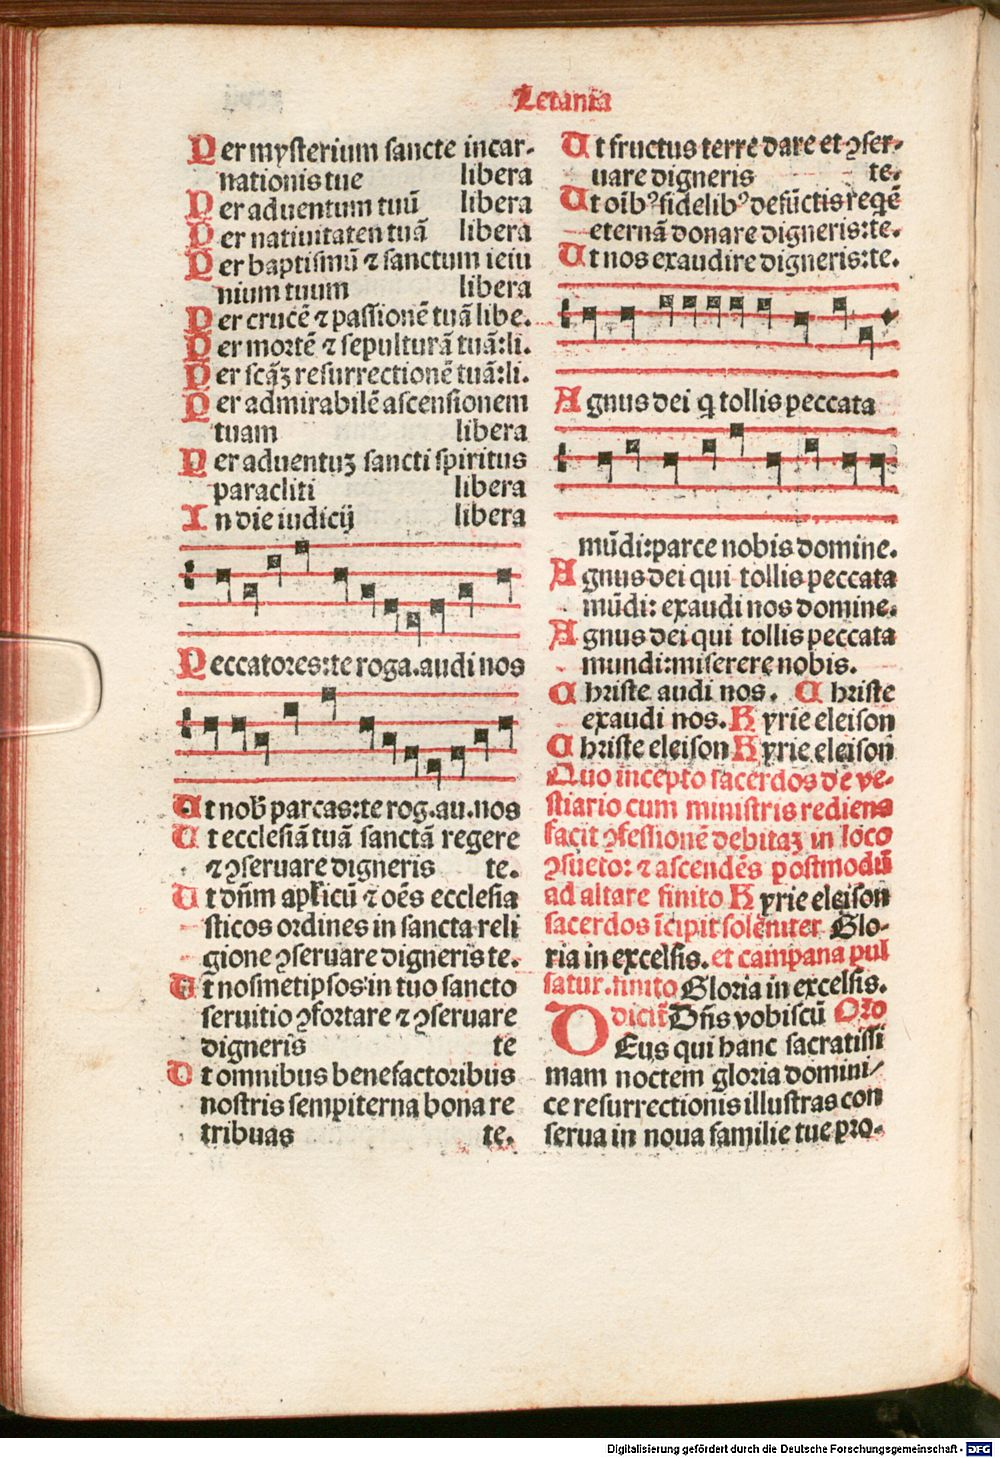 Letania
Per mysterium sancte incar-
nationis tue libera
Per aduentum tuū libera
Per natiuitaten tuā libera
Per baptismū ⁊ sanctum ieiu
nium tuum libera
Per crucē ⁊ passionē tuā libe.
Per mortē ⁊ sepulturā tuā: li.
Per scāꝫ resurrectionē tuā: li.
Per admirabilē ascensionem
tuam libera
Per aduentuꝫ sancti spiritus
paracliti libera
In die iudicij libera
Peccatores: te roga. audi nos
Ut nob̄ parcas: te rog. au. nos
Ut ecclesiā tuā sanctā regere
⁊ ꝯseruare digneris te.
Ut dn̄m aplicū ⁊ oēs ecclesia
sticos ordines in sancta reli
gione ꝯseruare digneris te.
Ut nosmetipsos in tuo sancto
seruitio ꝯfortare ⁊ ꝯseruare
digneris te
Ut omnibus benefactoribus
nostris sempiterna bona re
tribuas te.
Ut fructus terre dare et ꝯser-
uare digneris te.
Ut oīb⁹ fidelib⁹ defūctis reqē
eternā donare digneris: te.
Ut nos exaudire digneris: te.
Agnus dei q tollis peccata
mūdi: parce nobis domine.
Agnus dei qui tollis peccata
mūdi: exaudi nos domine.
Agnus dei qui tollis peccata
mundi: miserere nobis.
Christe audi nos. Christe
exaudi nos. Kyrie eleison
Christe eleison Kyrie eleison
Quo incepto sacerdos de ve-
stiario cum ministris rediens
facit ꝯfessionē debitaꝫ in loco
ꝯsueto: ⁊ ascendēs postmodū
ad altare finito Kyrie eleison
sacerdos īcipit solēniter Glo-
ria in excelsis. et campana pul
satur. finito Gloria in excelsis.
dicit Dn̄s vobiscū Oro
DEus qui hanc sacratissi
mam noctem gloria domini/
ce resurrectionis illustras con
serua in noua familie tue pro-
Digitalisierung gefördert durch die Deutsche Forschungsgemeinschaft - DFG